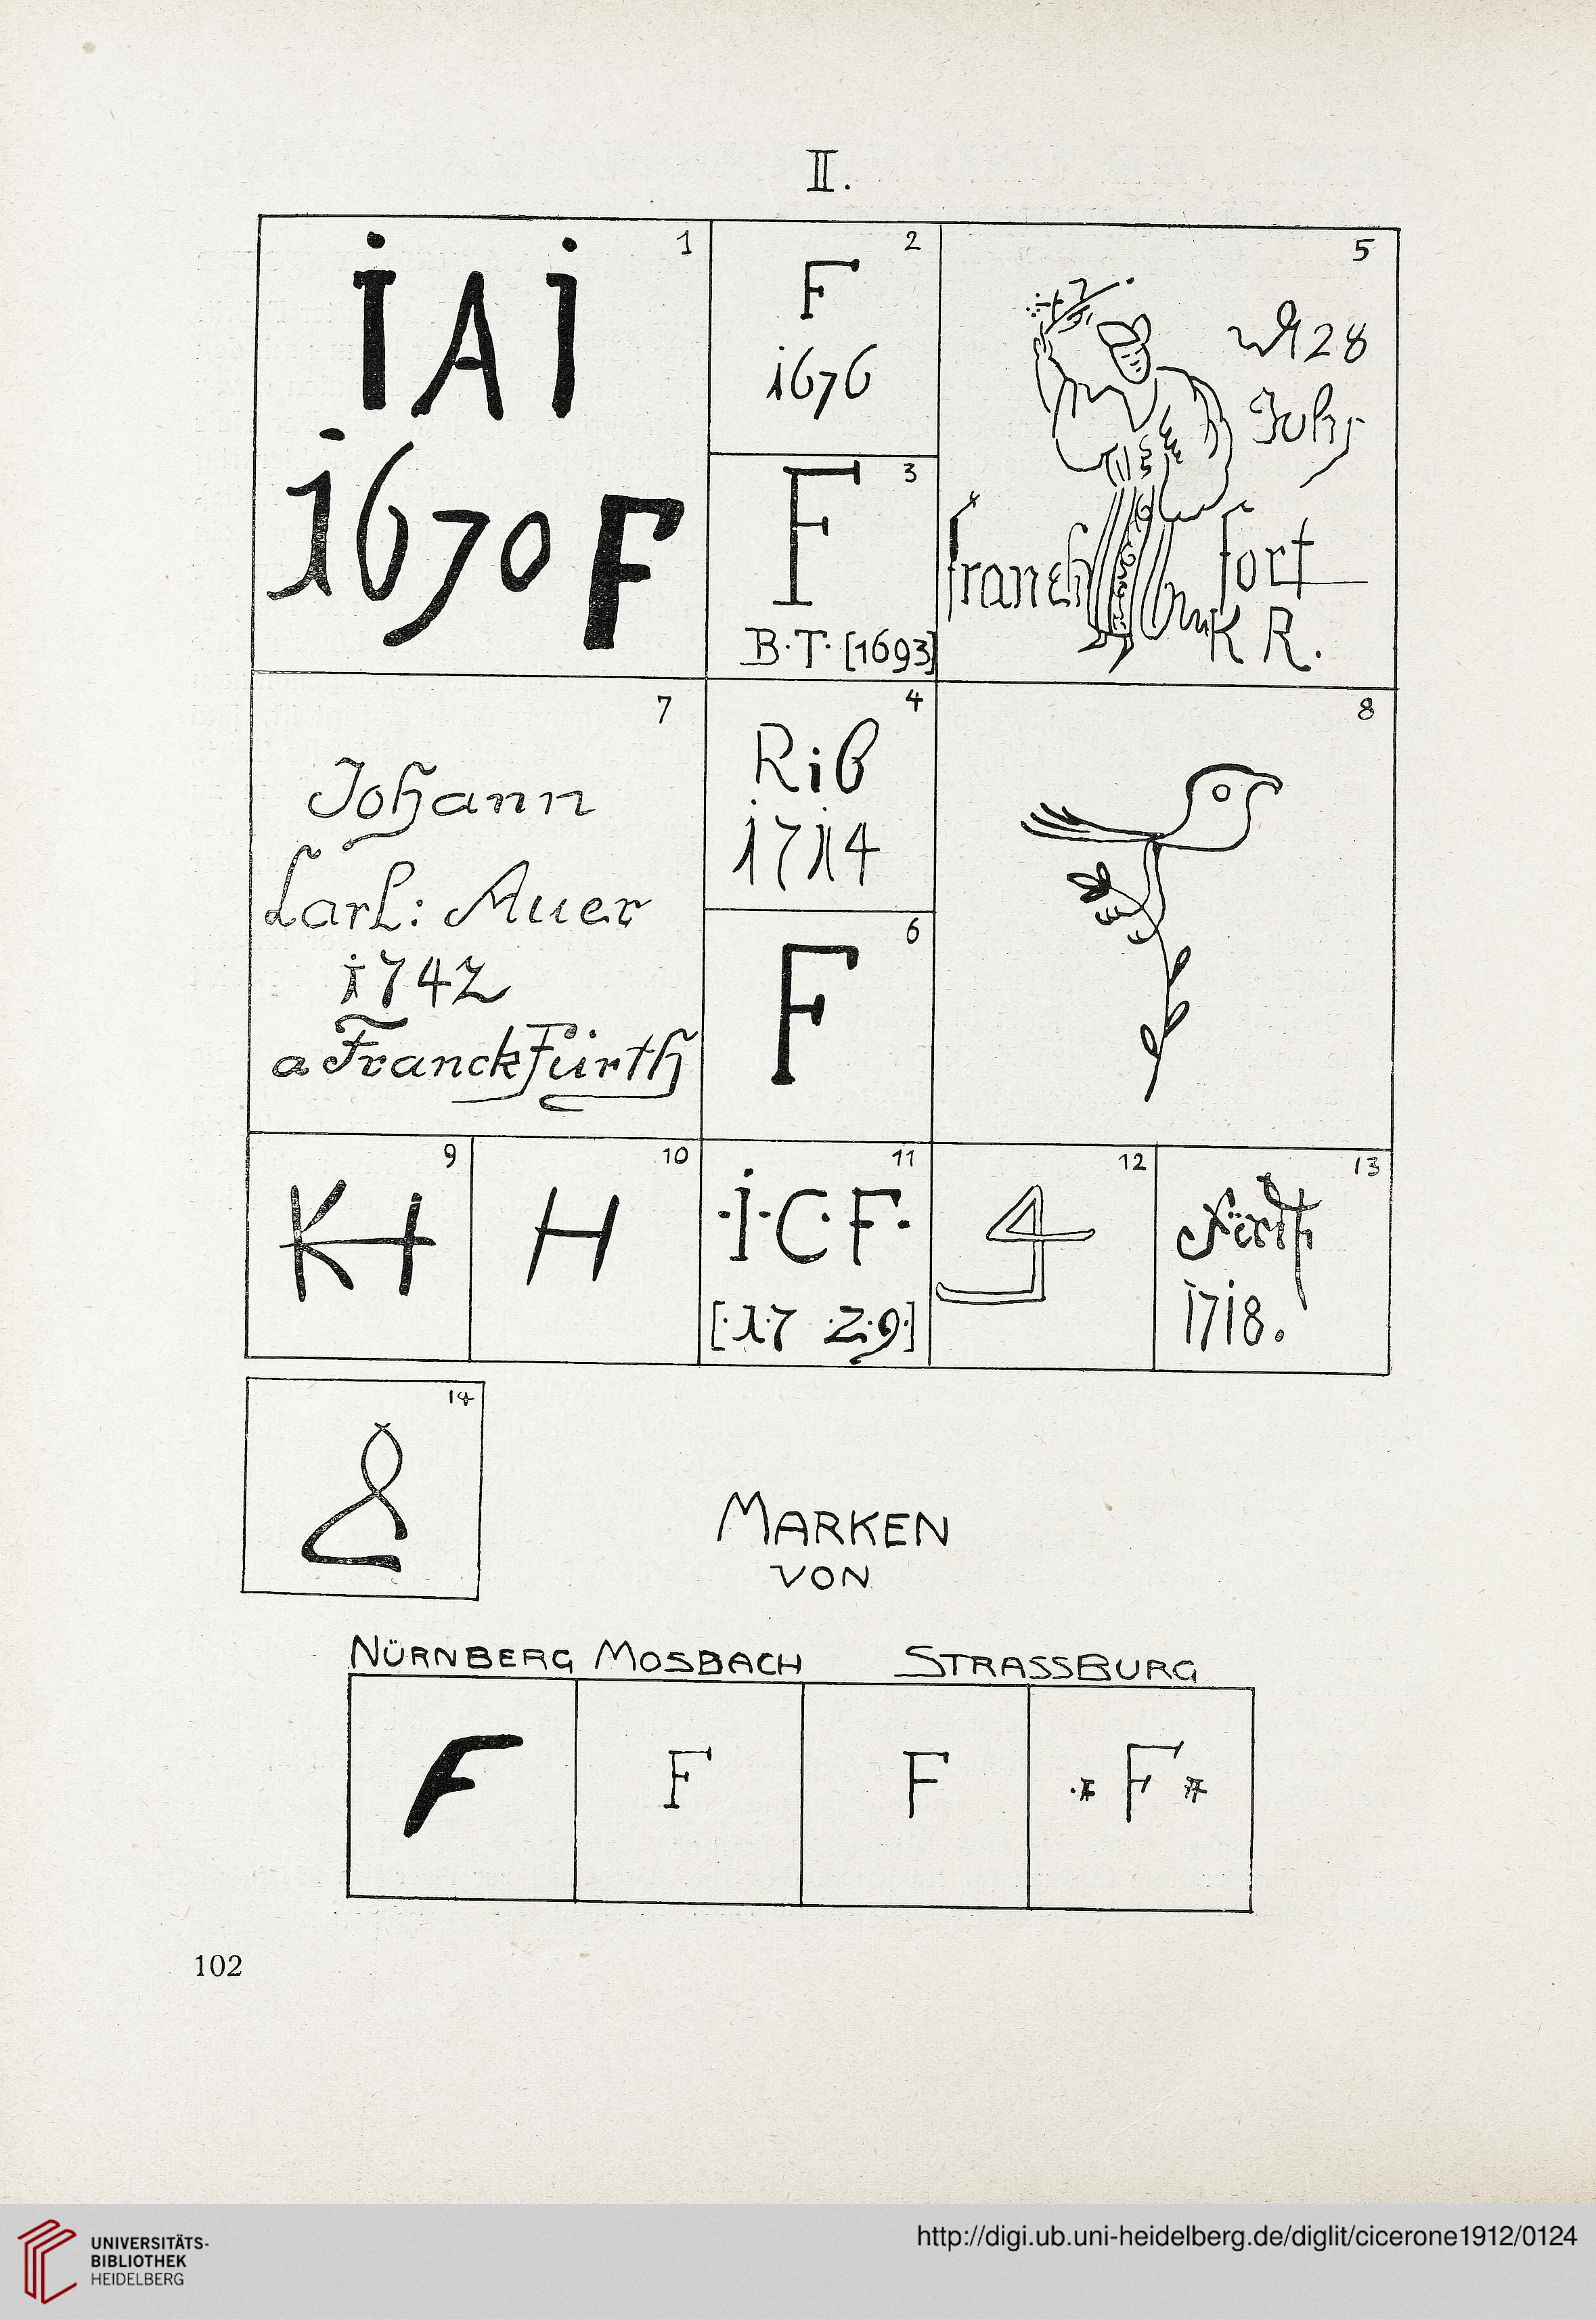 II.
1
IAI
1670 F
2
F
1676
3
F
B·T· [1693]
5
28
July
franckfort
K R.
7
Johann
Carl: Auer
1742
a Franckfürth
4
RiB
1714
6
F
8
9
KH
10
H
11
·I·C·F·
[·1·7 ·2·9·]
12
13
Fürth
1718.
14
MARKEN
VON
NÜRNBERG MOSBACH STRASSBURG
F F F * F *
102
UNIVERSITÄTS-
BIBLIOTHEK
HEIDELBERG
http://digi.ub.uni-heidelberg.de/diglit/cicerone1912/0124